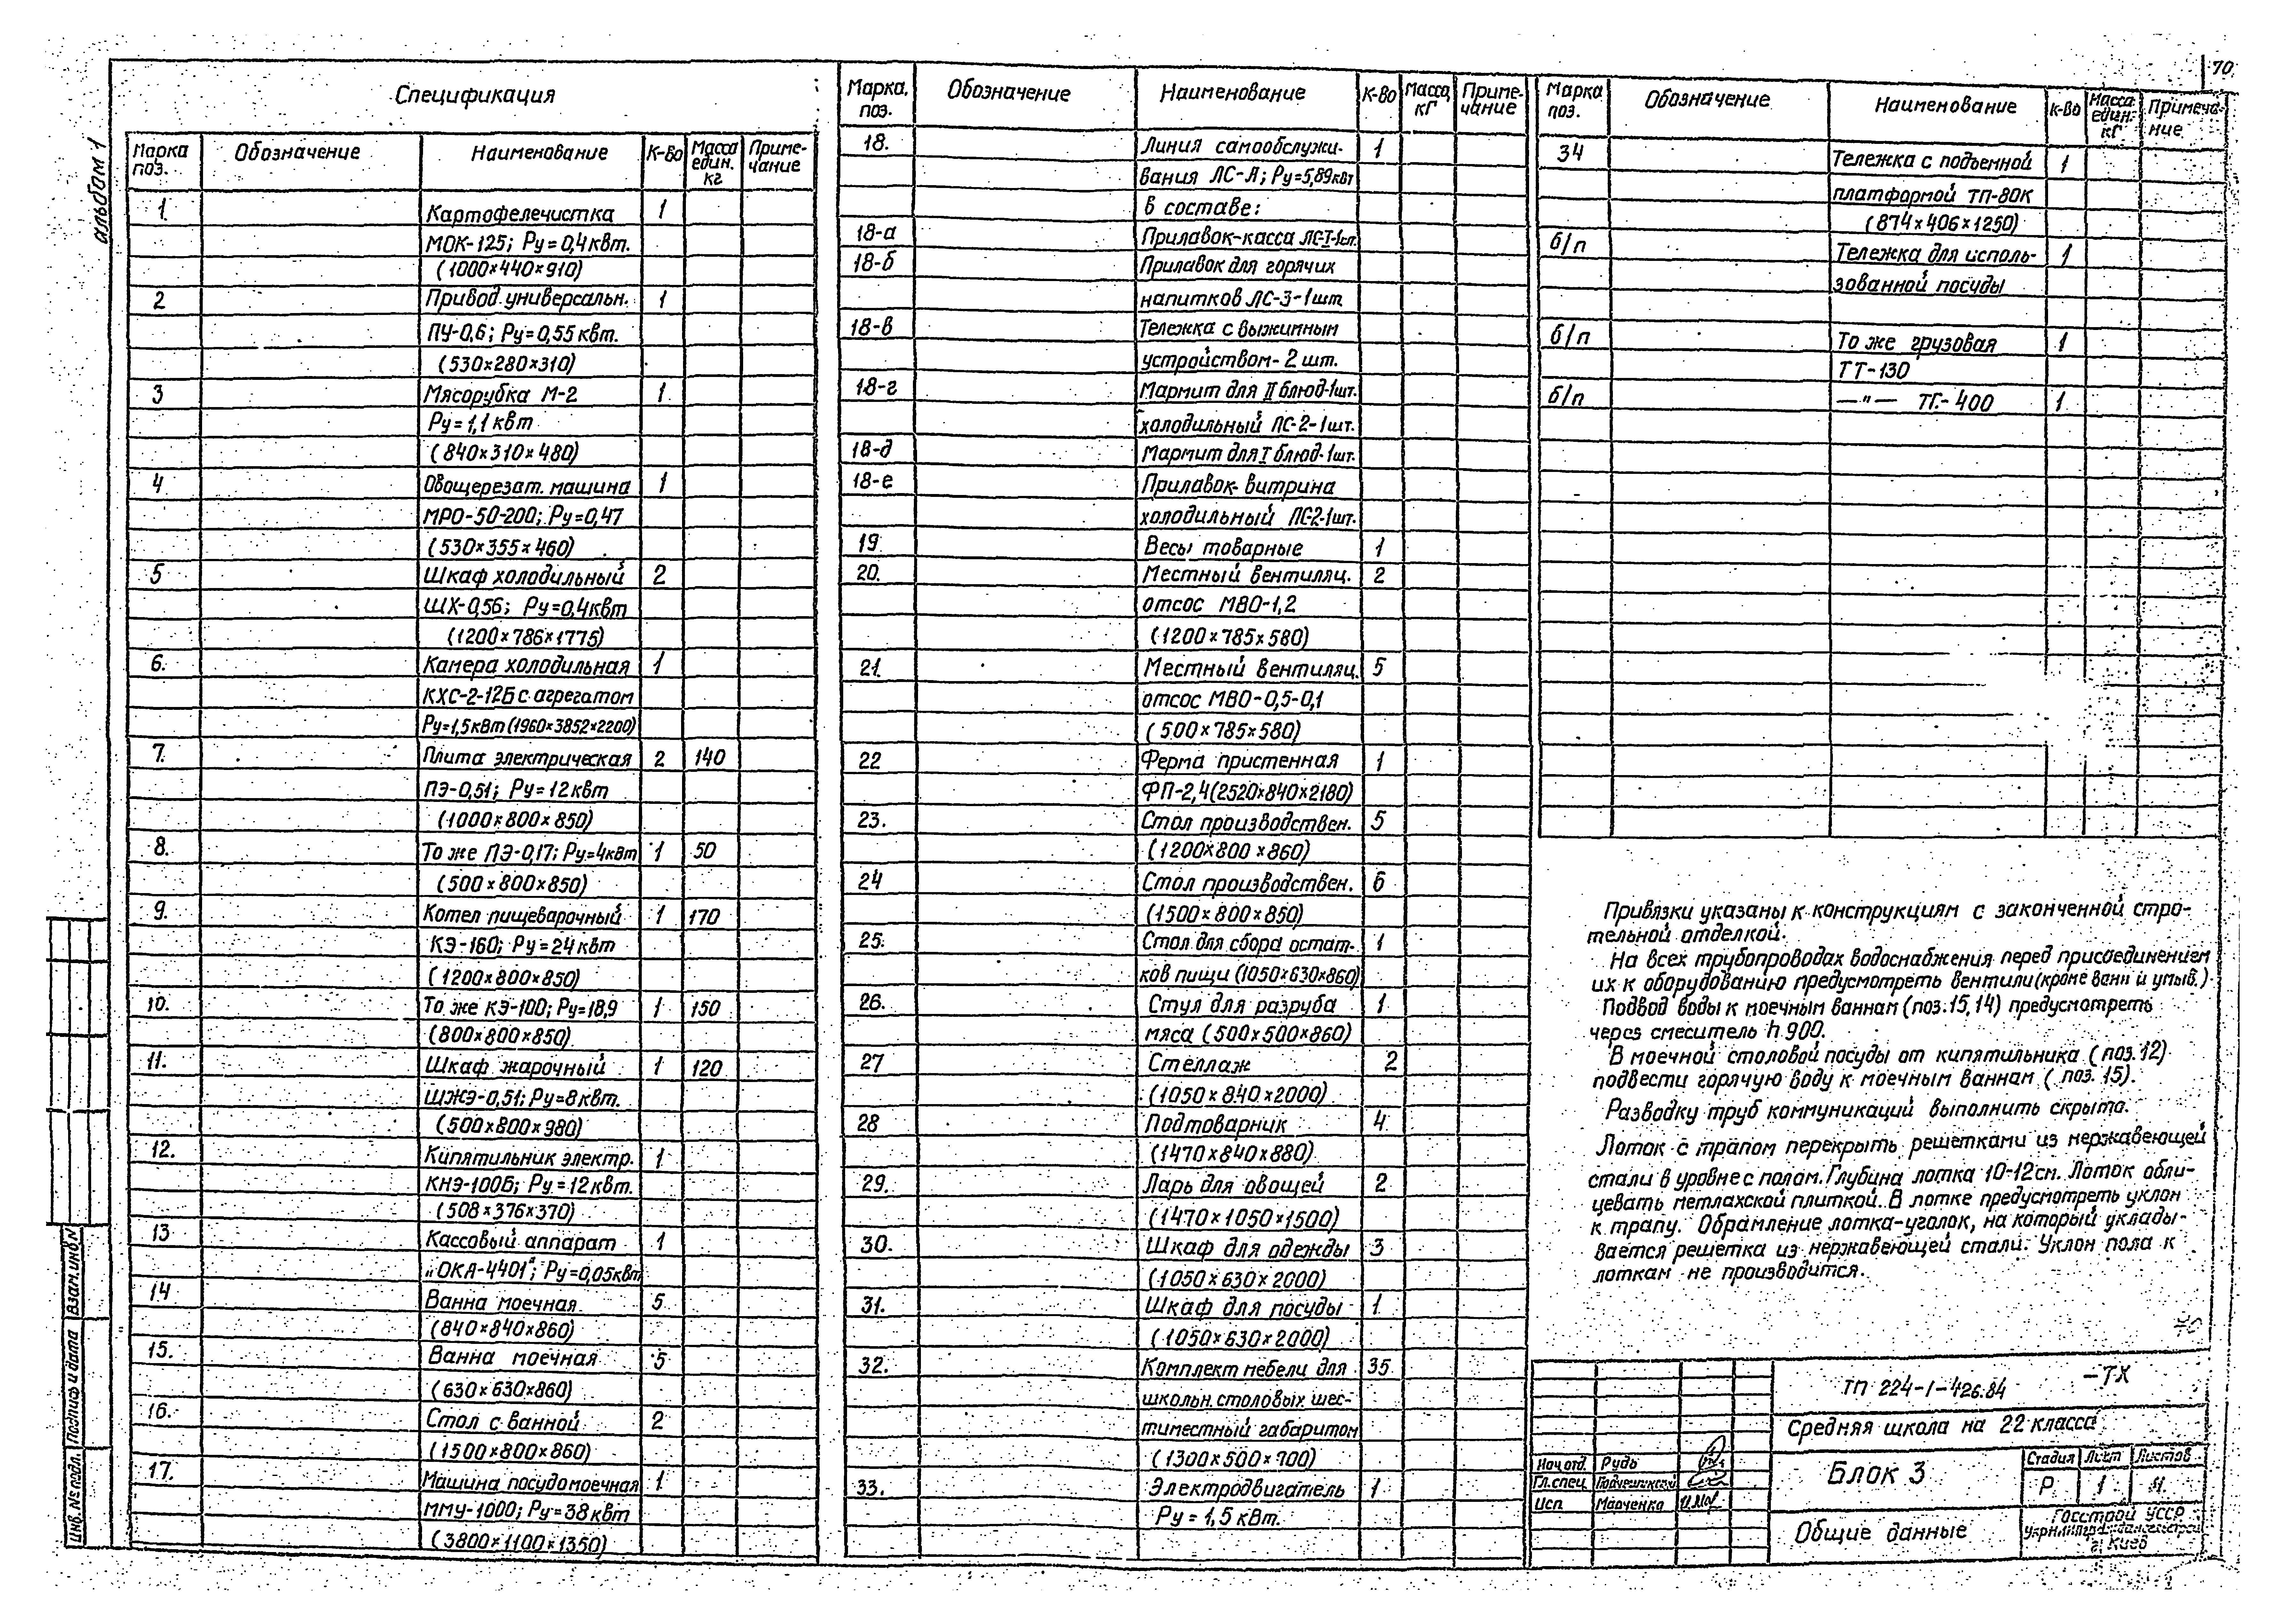 70
альбом 1
Спецификация
Марка поз. Обозначение Наименование К-во Масса един. кг Приме-чание
1. Картофелечистка 1
МОК-125; Ру=0,4квт.
(1000×440×910)
2 Привод универсальн. 1
ПУ-0,6; Ру=0,55 квт.
(530×280×310)
3 Мясорубка М-2 1
Ру=1,1 квт
(840×310×480)
4 Овощерезат. машина 1
МРО-50-200; Ру=0,47
(530×355×460)
5 Шкаф холодильный 2
ШХ-0,56; Ру=0,4квт
(1200×786×1775)
6. Камера холодильная 1
КХС-2-12Б с агрегатом
Ру=1,5квт(1960×3852×2200)
7. Плита электрическая 2 140
ПЭ-0,51; Ру=12квт
(1000×800×850)
8. То же ПЭ-0,17; Ру=4квт 1 50
(500×800×850)
9. Котел пищеварочный 1 170
КЭ-160; Ру=24квт
(1200×800×850)
10. То же КЭ-100; Ру=18,9 1 150
(800×800×850)
11. Шкаф жарочный 1 120
ШЖЭ-0,51; Ру=8квт.
(500×800×980)
12. Кипятильник электр. 1
КНЭ-100Б; Ру=12квт.
(508×376×370)
13 Кассовый аппарат 1
„ОКА-4401"; Ру=0,05квт
14 Ванна моечная 5
(840×840×860)
15. Ванна моечная 5
(630×630×860)
16. Стол с ванной 2
(1500×800×860)
17. Машина посудомоечная 1
ММУ-1000; Ру=38квт
(3800×1100×1350)
Марка, поз. Обозначение Наименование К-во Масса, кГ Приме-чание
18. Линия самообслужи- 1
вания ЛС-Л; Ру=5,89квт
в составе:
18-а Прилавок-касса ЛС-I-1шт.
18-б Прилавок для горячих
напитков ЛС-3-1шт
18-в Тележка с выжимным
устройством-2 шт.
18-г Мармит для II блюд-1шт.
холодильный ЛС-2-1шт.
18-д Мармит для I блюд-1шт.
18-е Прилавок-витрина
холодильный ЛС-2-1шт.
19 Весы товарные 1
20. Местный вентиляц. 2
отсос МВО-1,2
(1200×785×580)
21. Местный вентиляц. 5
отсос МВО-0,5-0,1
(500×785×580)
22 Ферма пристенная 1
ФП-2,4(2520×840×2180)
23. Стол производствен. 5
(1200×800×860)
24 Стол производствен. 6
(1500×800×850)
25. Стол для сбора остат- 1
ков пищи (1050×630×860)
26. Стул для разруба 1
мяса (500×500×860)
27 Стеллаж 2
(1050×840×2000)
28 Подтоварник 4
(1470×840×880)
29. Ларь для овощей 2
(1470×1050×1500)
30. Шкаф для одежды 3
(1050×630×2000)
31. Шкаф для посуды 1
(1050×630×2000)
32. Комплект мебели для 35
школьн. столовых шес-
тиместный габаритом
(1300×500×700)
33. Электродвигатель 1
Ру=1,5 кВт.
Марка поз. Обозначение Наименование к-во Масса един. кГ Примеча-ние
34 Тележка с подъемной 1
платформой ТП-80К
(874×406×1250)
б/п Тележка для исполь- 1
зованной посуды
б/п То же грузовая 1
ТТ-130
б/п —"— ТГ-400 1
Привязки указаны к конструкциям с законченной стро-
тельной отделкой.
На всех трубопроводах водоснабжения перед присоединением
их к оборудованию предусмотреть вентили(кроме ванн и умыв.).
Подвод воды к моечным ваннам (поз.15,14) предусмотреть
через смеситель h.900.
В моечной столовой посуды от кипятильника (поз.12)
подвести горячую воду к моечным ваннам (поз. 15).
Разводку труб коммуникаций выполнить скрыто.
Лоток с трапом перекрыть решетками из нержавеющей
стали в уровне с полом. Глубина лотка 10-12см. Лоток обли-
цевать метлахской плиткой. В лотке предусмотреть уклон
к трапу. Обрамление лотка-уголок, на который уклады-
вается решетка из нержавеющей стали. Уклон пола к
лоткам не производится.
ТП 224-1-426.84 -ТХ
Средняя школа на 22 класса
Нач.отд. Рудь
Гл.спец.
Исп Марченко
Блок 3
Стадия Лист Листов
Р 1
Общие данные
Госстрой УССР
г. Киев
Инв. № подл. Подпись и дата Взам. инв. №